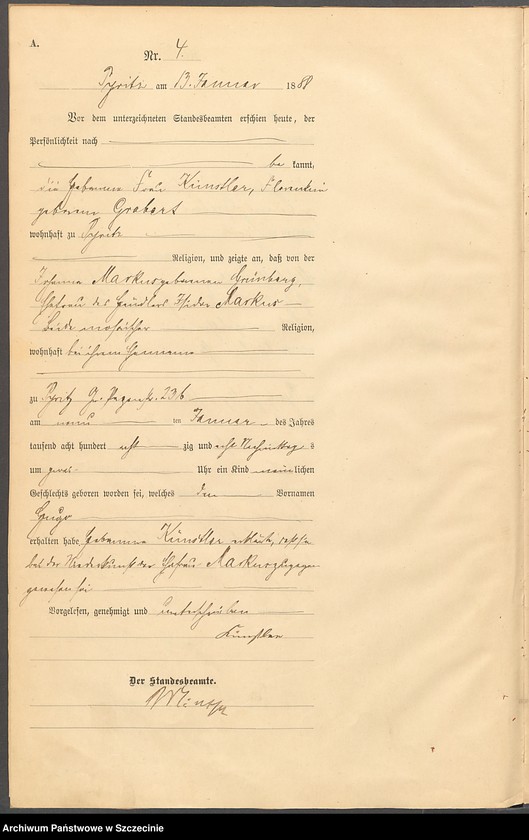 A.
Nr. 4.
Pyritz am 13. Januar 1888
Vor dem unterzeichneten Standesbeamten erschien heute, der
Persönlichkeit nach
be kannt,
die Hebamme Frau Künstler, Florentine
geborene Grabert
wohnhaft zu Pyritz
Religion, und zeigte an, daß von der
Johanna Markus geborenen Grünberg,
Ehefrau des Händlers Isidor Markus
Beide mosaischer Religion,
wohnhaft bei ihrem Ehemanne
zu Pyritz 236
am neun ten Januar des Jahres
tausend acht hundert acht zig und acht Nachmittags
um zwei Uhr ein Kind männlichen
Geschlechts geboren worden sei, welches den Vornamen
Hugo
erhalten habe Hebamme Künstler erklärte, daß sie
bei der Niederkunft der Ehefrau Markus zugegen
gewesen sei
Vorgelesen, genehmigt und unterschrieben
Künstler
Der Standesbeamte.
Archiwum Państwowe w Szczecinie